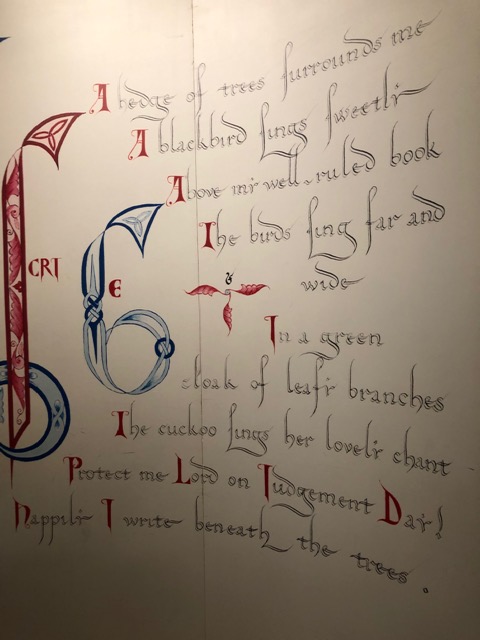 A hedge of trees surrounds me
A blackbird sings sweetli
Above mi well-ruled book
The birds sing far and
&
wide
CRI
E
In a green
cloak of leafi branches
The cuckoo sings her loveli chant
Protect me Lord on Judgement Day!
Happili I write beneath the trees.